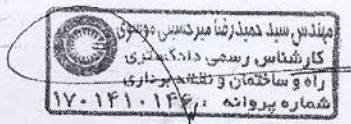 مهندس سید حمیدرضا میرحسینی موسوی
کارشناس رسمی دادگستری
راه و ساختمان و نقشه برداری
شماره پروانه ۱۷۰۱۴۱۰۱۴۴